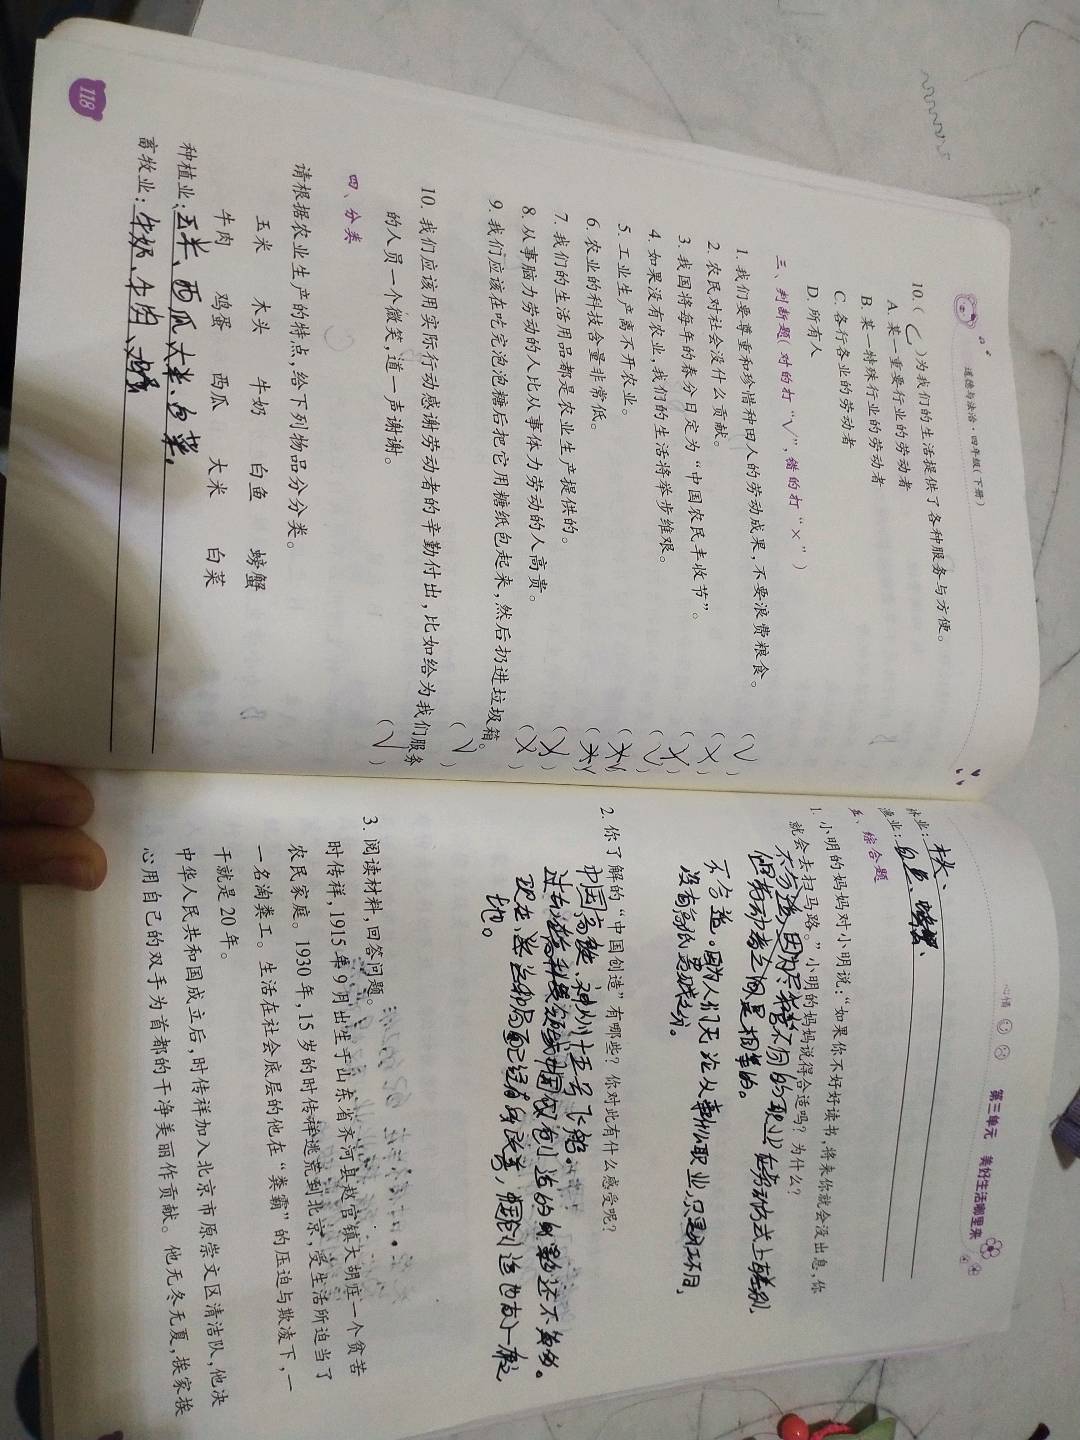 道德与法治·四年级(下册)
10.( C )为我们的生活提供了各种服务与方便。
A. 某一重要行业的劳动者
B. 某一特殊行业的劳动者
C. 各行各业的劳动者
D. 所有人
三、判断题(对的打“√”,错的打“×”)
1. 我们要尊重和珍惜种田人的劳动成果,不要浪费粮食。 (√)
2. 农民对社会没什么贡献。 (×)
3. 我国将每年的春分日定为“中国农民丰收节”。 (×)
4. 如果没有农业,我们的生活将举步维艰。 (√)
5. 工业生产离不开农业。
6. 农业的科技含量非常低。
7. 我们的生活用品都是农业生产提供的。 (×)
8. 从事脑力劳动的人比从事体力劳动的人高贵。 (×)
9. 我们应该在吃完泡泡糖后把它用糖纸包起来,然后扔进垃圾箱。 (√)
10. 我们应该用实际行动感谢劳动者的辛勤付出,比如给为我们服务
的人员一个微笑,道一声谢谢。 (√)
四、分类
请根据农业生产的特点,给下列物品分分类。
玉米 木头 牛奶 白鱼 螃蟹
牛肉 鸡蛋 西瓜 大米 白菜
种植业:玉米、西瓜、大米、白菜。
畜牧业:牛奶、牛肉、鸡蛋
118
心情
第三单元 美好生活哪里来
林业:木头、
渔业:白鱼、螃蟹、
五、综合题
1. 小明的妈妈对小明说:“如果你不好好读书,将来你就会没出息,你
就会去扫马路。”小明的妈妈说得合适吗?为什么?
不合适,因为尽管不同的职业在劳动方式上有差别,
但劳动者之间是相等的。
不合适。因为人们无论从事什么职业,只是分工不同,
没有高低贵贱之分。
2. 你了解的“中国创造”有哪些?你对此有什么感受呢?
中国高铁、神州十五号飞船。
过去
中国 创造的 还不够多。
现在, 已经有所改善, 创造也有了一席之
地。
3. 阅读材料,回答问题。
时传祥,1915年9月出生于山东省齐河县赵官镇大胡庄一个贫苦
农民家庭。1930年,15岁的时传祥逃荒到北京,受生活所迫当了
一名淘粪工。生活在社会底层的他在“粪霸”的压迫与欺凌下,一
干就是20年。
中华人民共和国成立后,时传祥加入北京市原崇文区清洁队,他决
心用自己的双手为首都的干净美丽作贡献。他无冬无夏,挨家挨